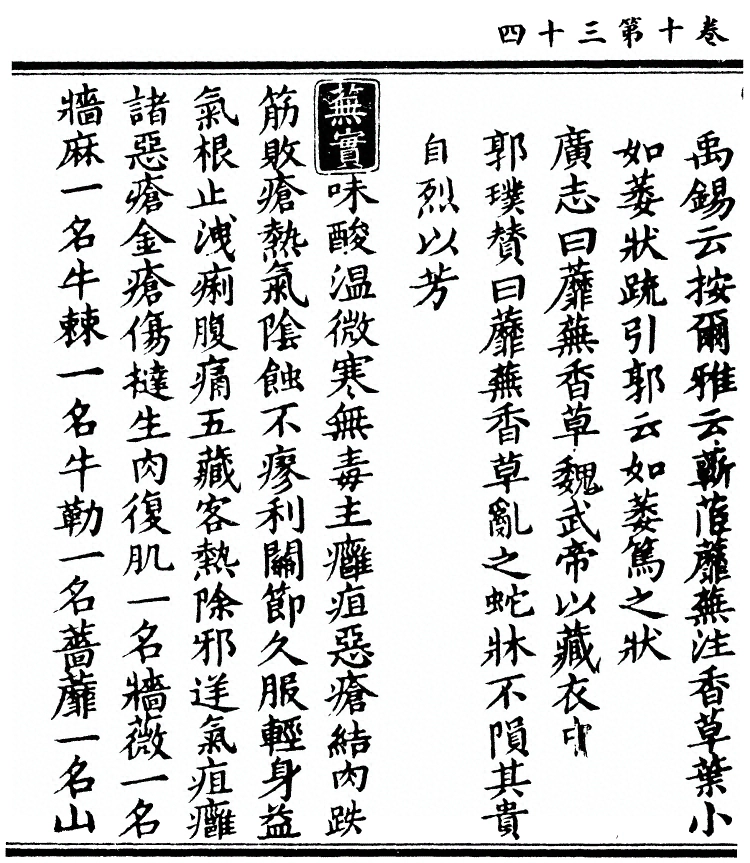 卷十第三十四
禹錫云按爾雅云蘄茝蘼蕪注香草葉小
如萎狀疏引郭云如萎篤之狀
廣志曰蘼蕪香草魏武帝以藏衣中
郭璞賛曰蘼蕪香草亂之蛇牀不隕其貴
自烈以芳
蕪實味酸温微寒無毒主癰疽惡瘡結肉跌
筋敗瘡熱氣隂蝕不瘳利關節久服輕身益
氣根止洩痢腹痛五藏客熱除邪逆氣疽癰
諸惡瘡金瘡傷撻生肉復肌一名牆薇一名
牆麻一名牛棘一名牛勒一名薔蘼一名山